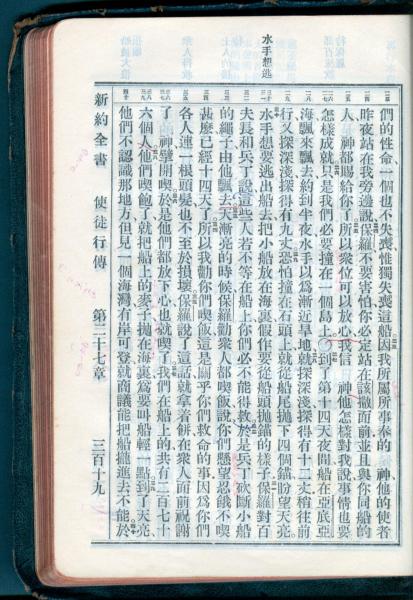 水手想逃
們的性命一個也不失喪惟獨失喪這船因我所屬所事奉的 神他的使者
昨夜站在我旁邊說保羅不要害怕你必定站在該撒面前並且與你同船的
人 神都賜給你了所以衆位可以放心我信 神他怎樣對我說事情也要
怎樣成就只是我們必要撞在一個島上到了第十四天夜間船在亞底亞
海飄來飄去約到半夜水手以爲漸近旱地就探深淺探得有十二丈稍往前
行又探深淺探得有九丈恐怕撞在石頭上就從船尾拋下四個錨盼望天亮
水手想要逃出船去把小船放在海裏假作要從船頭拋錨的樣子保羅對百
夫長和兵丁說這些人若不等在船上你們必不能得救於是兵丁砍斷小船
的繩子由他飄去天漸亮的時候保羅勸衆人都喫飯說你們懸望忍餓不喫
甚麼已經十四天了所以我勸你們喫飯這是關乎你們救命的事因爲你們
各人連一根頭髮也不至於損壞保羅說了這話就拿着餅在衆人面前祝謝
了 神擘開喫於是他們都放下心也就喫了我們在船上的共有二百七十
六個人他們喫飽了就把船上的麥子拋在海裏爲要叫船輕一點到了天亮
他們不認識那地方但見一個海灣有岸可登就商議能把船攏進去不能於
新約全書 使徒行傳 第二十七章 三百十九